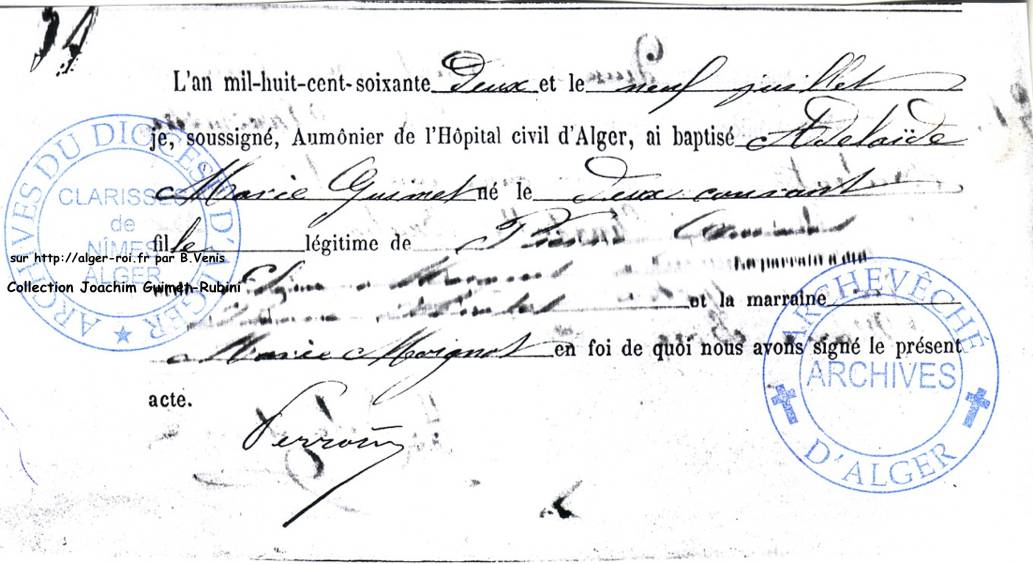 L'an mil-huit-cent-soixante Deux et le neuf juillet
je, soussigné, Aumônier de l'Hôpital civil d'Alger, ai baptisé Adelaïde
Marie Guimet né le deux courant
fille légitime de
le parrain a été
et la marraine
Marie Moignot en foi de quoi nous avons signé le présent
acte.
ARCHIVES DU DIOCÈSE D'ALGER
CLARISSES
de
NÎMES
ALGER
sur http://alger-roi.fr par B.Venis
Collection Joachim Guimet-Rubini
ARCHEVÊCHÉ
ARCHIVES
D'ALGER